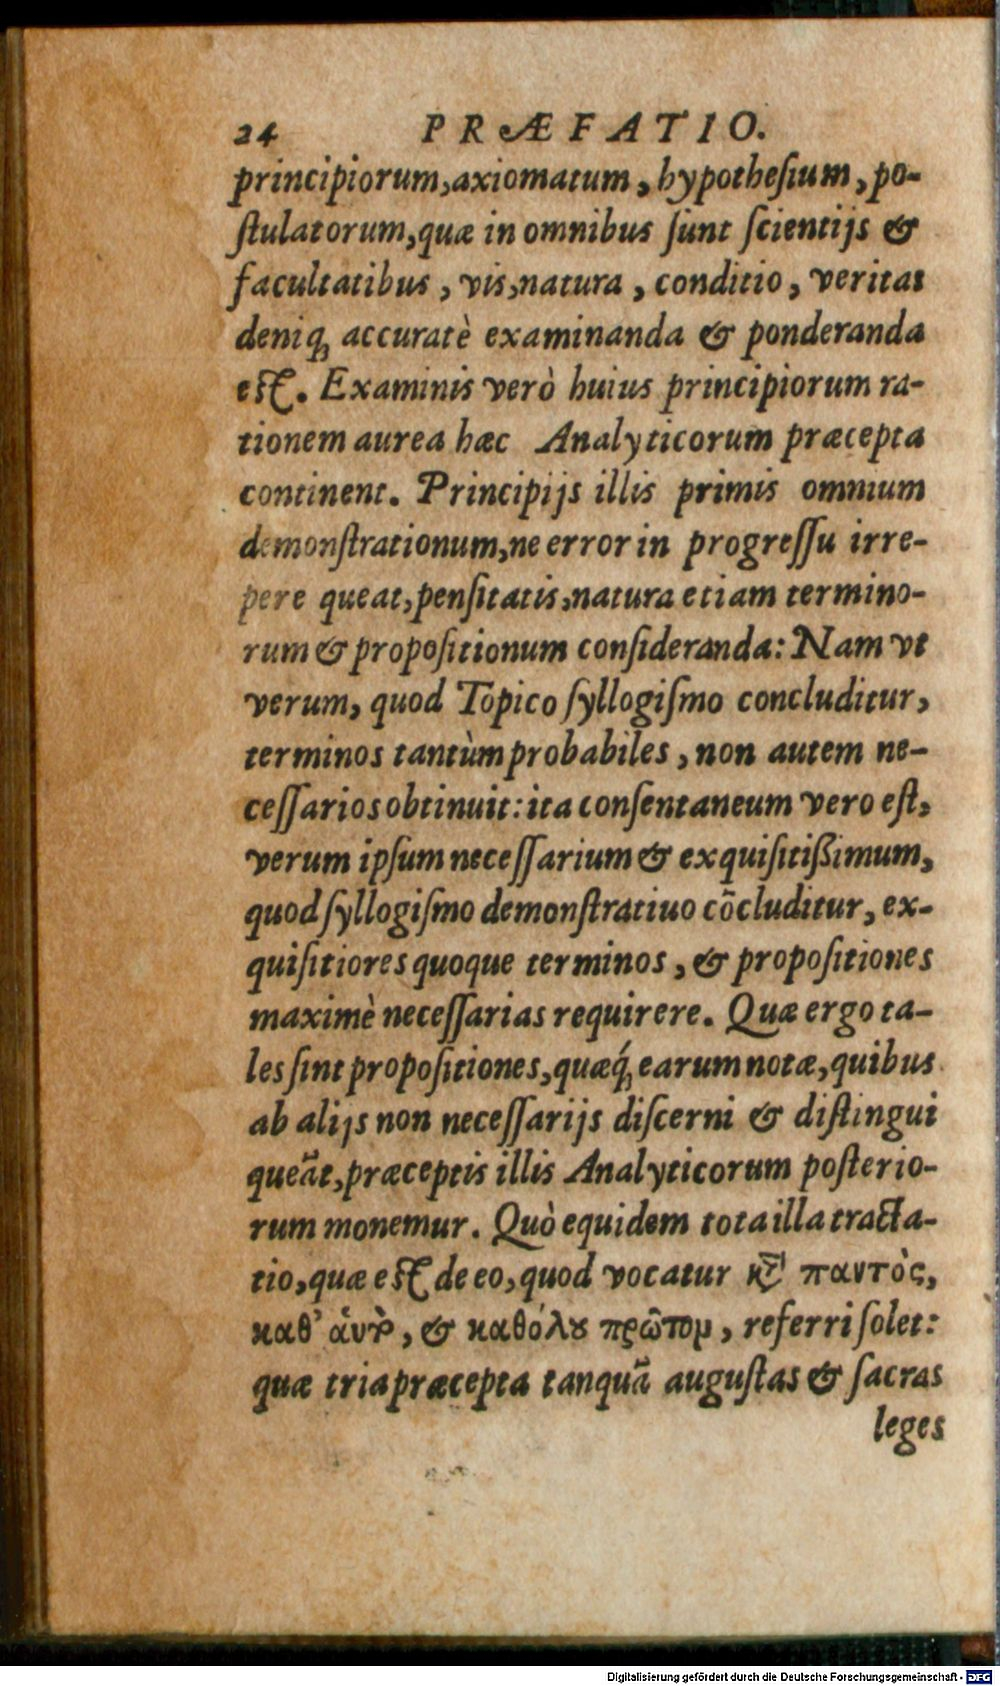 24 PRÆFATIO.
principiorum, axiomatum, hypothesium, po-
ſtulatorum, quæ in omnibus ſunt ſcientijs &
facultatibus, vis, natura, conditio, veritas
deniq; accuratè examinanda & ponderanda
eſt. Examinis verò huius principiorum ra-
tionem aurea hæc Analyticorum præcepta
continent. Principijs illis primis omnium
demonſtrationum, ne error in progreſſu irre-
pere queat, penſitatis, natura etiam termino-
rum & propoſitionum conſideranda: Nam vt
verum, quod Topico ſyllogiſmo concluditur,
terminos tantùm probabiles, non autem ne-
ceſſarios obtinuit: ita conſentaneum vero eſt,
verum ipſum neceſſarium & exquiſitißimum,
quod ſyllogiſmo demonſtratiuo cõcluditur, ex-
quiſitiores quoque terminos, & propoſitiones
maximè neceſſarias requirere. Quæ ergo ta-
les ſint propoſitiones, quæq́; earum notæ, quibus
ab alijs non neceſſarijs diſcerni & diſtingui
queãt, præceptis illis Analyticorum poſterio-
rum monemur. Quò equidem tota illa tracta-
tio, quæ eſt de eo, quod vocatur κτ̀ παντὸς,
καθ’ ἁυτὸ, & καθόλȣ πρῶτομ, referri ſolet:
quæ tria præcepta tanquã auguſtas & ſacras
leges
Digitalisierung gefördert durch die Deutsche Forschungsgemeinschaft - DFG